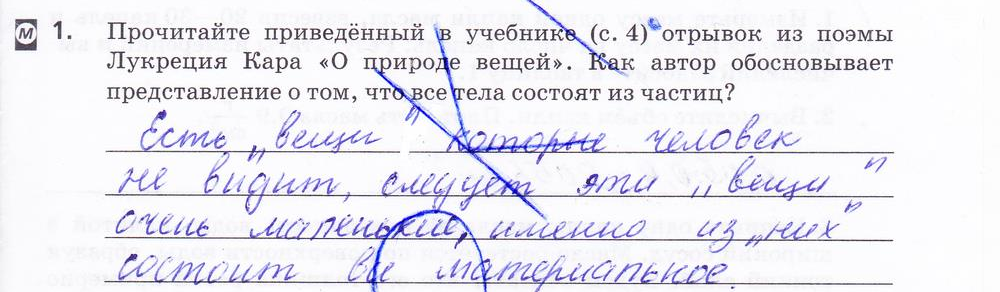 М 1. Прочитайте приведённый в учебнике (с. 4) отрывок из поэмы
Лукреция Кара «О природе вещей». Как автор обосновывает
представление о том, что все тела состоят из частиц?
Есть „вещи" которые человек
не видит, следует эти „вещи"
очень маленькие, именно из „них"
состоит всё материальное.